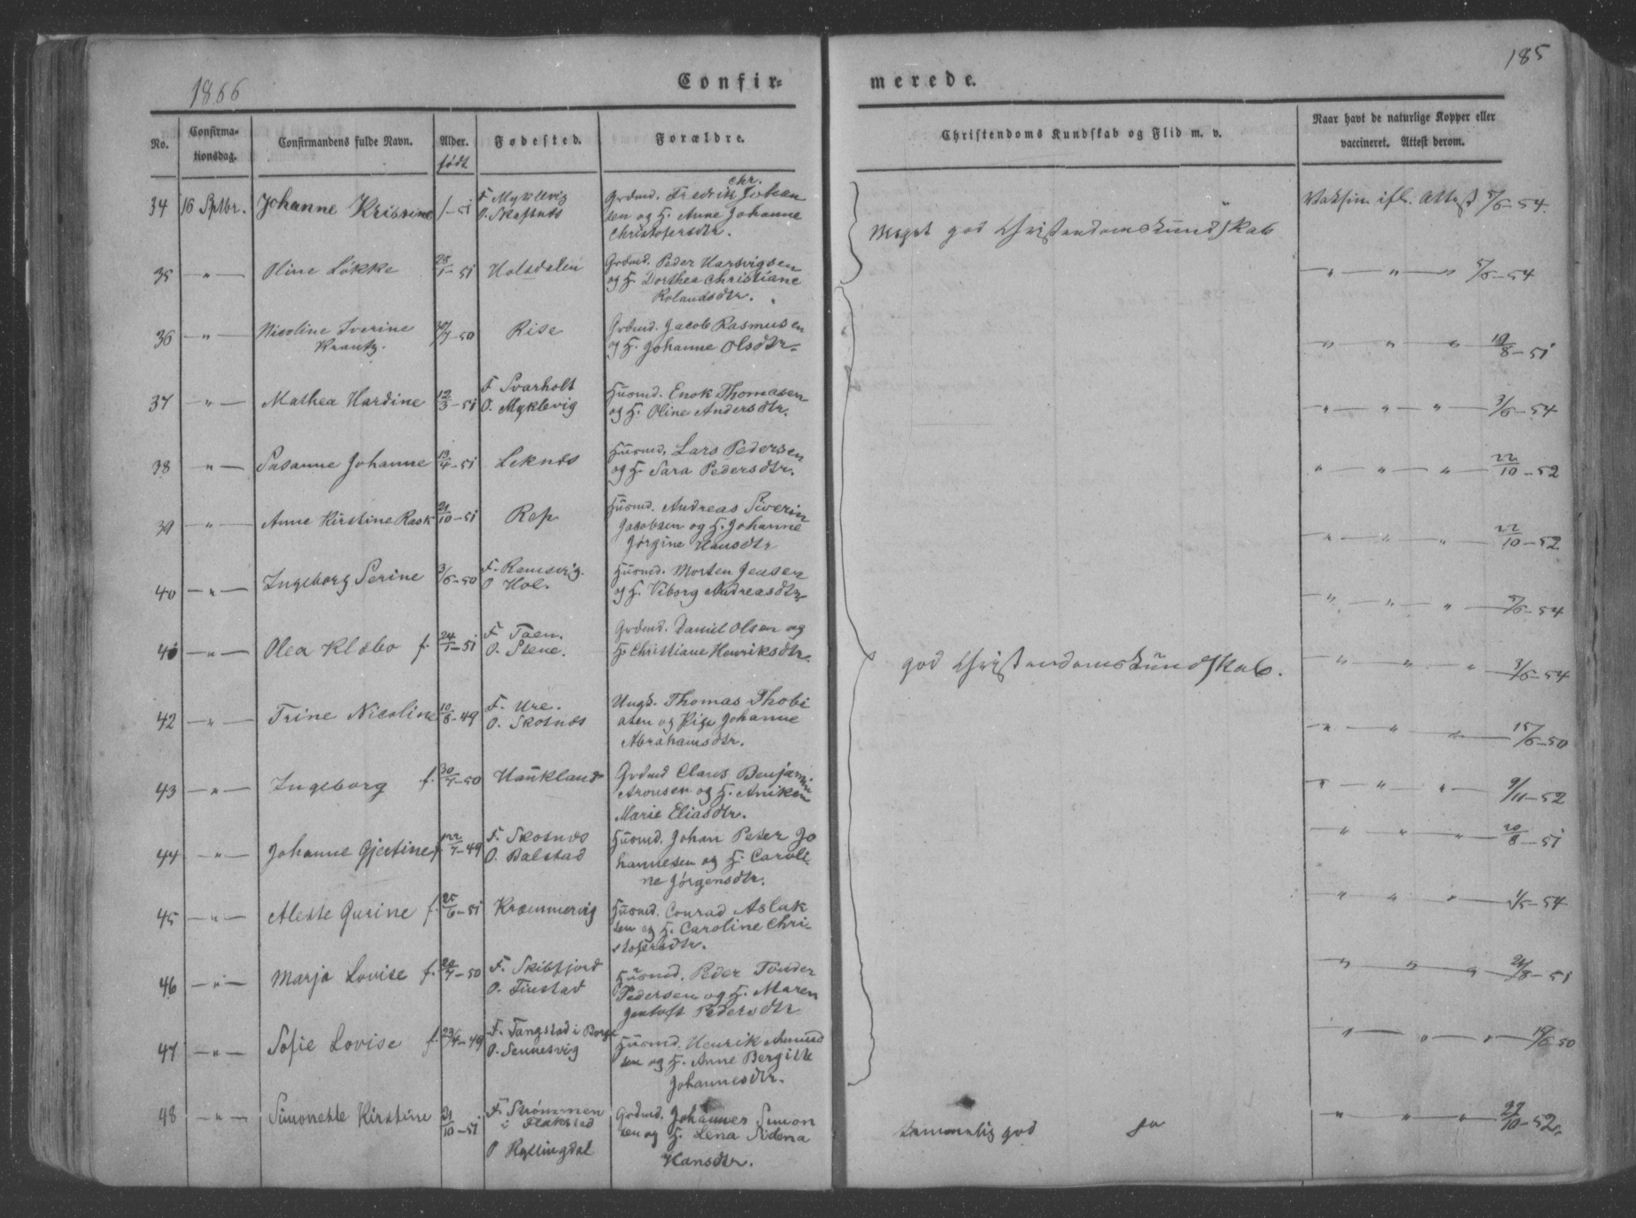 185
1866
Confir=
merede.
No.
Confirma=
tionsdag.
Confirmandens fulde Navn.
Alder.
født
Fødested.
Forældre.
Christendoms Kundskab og Flid m. v.
Naar havt de naturlige Kopper eller
vaccineret. Attest derom.
34 16 Sptbr. Johanne Krisine 1/-51 F Myklevig
O. Skotnæs
Grdmd. Fredrik Chr. Johan
sen og H. Anne Johanne
Christofersdtr.
Meget god Christendomskundskab
Vaksin. ifl. Attest 5/6-54.
35 —„— Oline Løkke 28/1-51 Holsdalen
Grdmd. Peder Hartvigsen
og H. Dorthea Christiane
Rolandsdtr.
„—„—„— 5/6-54
36 —„— Nicoline Iverine
Krantz. /7-50 Rise
Grdmd. Jacob Rasmusen
og H. Johanne Olsdtr.
„—„—„— 19/8-51
37 —„— Mathea Hardine 12/3-51 F Svarholt
O. Myklevig
Husmd. Enok Thomasen
og H. Oline Andersdtr.
„—„—„— 3/6-54
38 —„— Susanne Johanne 13/4-51 Leknæs
Husmd. Lars Pedersen
og H. Sara Pedersdtr.
„—„—„— 22/10-52
39 —„— Anne Kirstine Rask 21/10-51 Rep
Husmd. Andreas Siverin
Jacobsen og H. Johanne
Jørgine Hansdtr
„—„—„— 22/10-52
40 —„— Ingeborg Serine 3/6-50 F. Ramsvig.
O Hol.
Husmd. Morten Jensen
og H. Viborg Andreasdtr.
„—„—„— 5/6-54
41 —„— Olea Klæbo f. 24/1-51 F. Taen.
O. Stene.
Grdmd. Daniel Olsen og
H. Christiane Henriksdtr.
god Christendomskundskab.
„—„—„— 3/6-54
42 —„— Trine Nicoline 10/8-49 F. Ure.
O. Skotnæs
Ungk. Thomas Thobi
asen og Pige Johanne
Abrahamsdtr.
„—„—„— 15/6-50
43 —„— Ingeborg f. 30/7-50 Haukland
Grdmd Claus Benjamin
Aronsen og H. Aniken
Marie Eliasdtr.
„—„—„— 9/11-52
44 —„— Johanne Gjertine f. 22/7-49 F. Skotnæs
O. Balstad
Husmd. Johan Peter Jo
hannesen og H. Caroli=
ne Jørgensdtr.
„—„—„— 20/8-51
45 —„— Alette Gurine f. 25/6-51 Kræmmervig
Husmd. Conrad Aslak
sen og H. Caroline Chri=
stofersdtr.
„—„—„— /5-54
46 —„— Marja Lovise f. 22/7-50 F. Skibfjord
O. Finstad
Husmd. Peder Tønder
Pedersen og H. Maren
Pedersdtr
„—„—„— 21/8-51
47 —„— Sofie Lovise f. 23/4-49 F. Tangstad i Borge
O. Sennesvig
Husmd. Henrik Amund
sen og H. Anne Bergitte
Johannesdtr.
„—„—„— 15/6-50
48 —„— Simonette Kirstine 31/10-51 F. Strømmen
i Flakstad
O Ryllingdal
Grdmd. Johannes Simon
sen og H. Lena Sidena
Hansdtr.
temmelig god
„—„—„— 22/10-52.